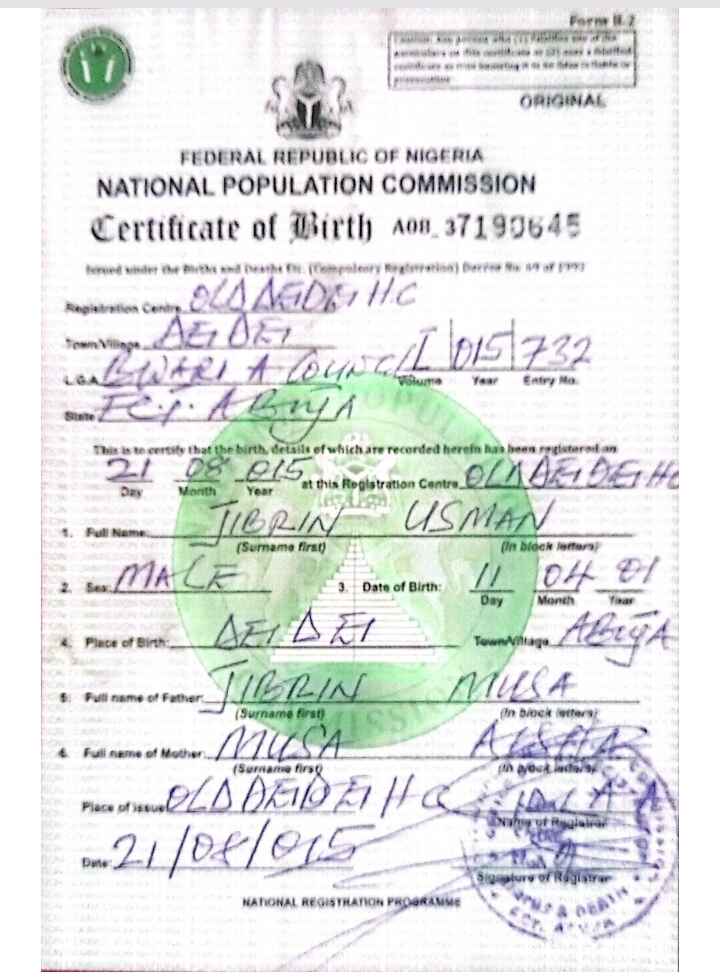 Form B.2
Caution: Any person who (1) falsifies any of the
particulars on this certificate or (2) uses a falsified
certificate as true knowing it to be false is liable to
prosecution
ORIGINAL
FEDERAL REPUBLIC OF NIGERIA
NATIONAL POPULATION COMMISSION
Certificate of Birth A08_37190645
Issued under the Births and Deaths Etc. (Compulsory Registration) Decree No. 69 of 1992
Registration Centre OLD DEIDEI HC
Town/Village DEI DEI
L.G.A. BWARI A COUNCIL I 015 732
Volume Year Entry No.
State F.C.T. ABUJA
This is to certify that the birth, details of which are recorded herein has been registered on
21 08 015 at this Registration Centre OLD DEI DEI HC
Day Month Year
1. Full Name: JIBRIN USMAN
(Surname first) (In block letters)
2. Sex: MALE 3. Date of Birth: 11 04 01
Day Month Year
4. Place of Birth: DEI DEI Town/Village ABUJA
5. Full name of Father: JIBRIN MUSA
(Surname first) (In block letters)
6. Full name of Mother: MUSA
(Surname first) (In block letters)
Place of issue OLD DEIDEI HC
Name of Registrar
Date: 21/08/015
Signature of Registrar
NATIONAL REGISTRATION PROGRAMME